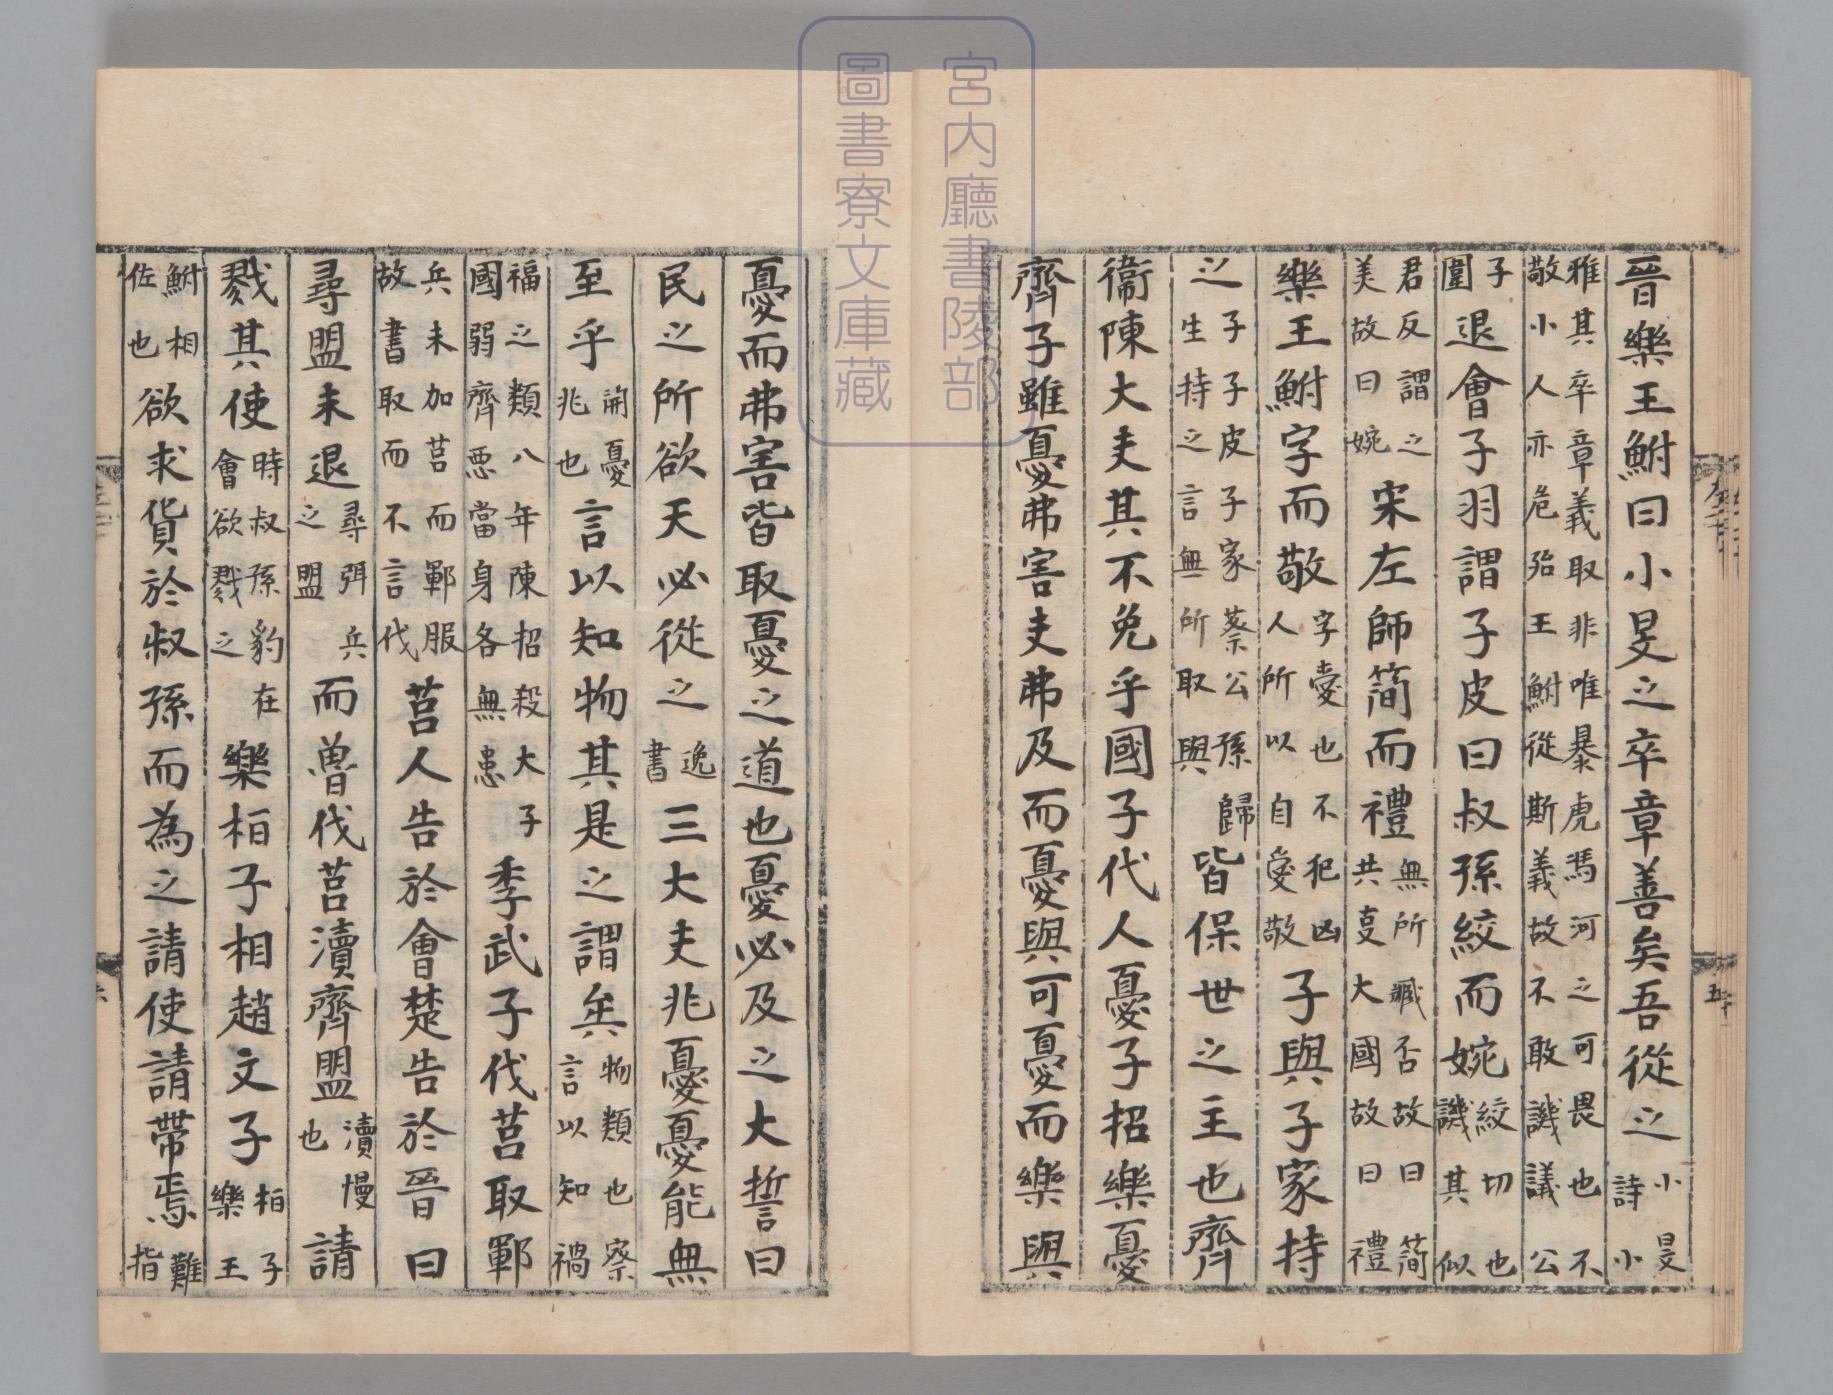 晉樂王鮒曰小旻之卒章善矣吾從之小旻詩小
雅其卒章義取非唯暴虎馮河之可畏也不敬小人亦危殆王鮒從斯義故不敢譏議公
子圍退會子羽謂子皮曰叔孫絞而婉絞切也譏其似
君反謂之美故曰婉宋左師簡而禮無所臧否故曰簡共㕝大國故曰禮
樂王鮒字而敬字愛也不犯凶人所以自愛敬子與子家持
之子子皮子家蔡公孫歸生持之言無所取與皆保世之主也齊
衞陳大夫其不免乎國子代人憂子招樂憂
齊子雖憂弗害夫弗及而憂與可憂而樂與
憂而弗害皆取憂之道也憂必及之大誓曰
民之所欲天必從之逸書三大夫兆憂憂能無
至乎開憂兆也言以知物其是之謂矣物類也察言以知禍
福之類八年陳招殺大子國弱齊惡當身各無患季武子伐莒取鄆
兵未加莒而鄆服故書取而不言伐莒人告於會楚告於晉曰
尋盟未退尋弭兵之盟而魯伐莒瀆齊盟瀆慢也請
戮其使時叔孫豹在會欲戮之樂桓子相趙文子桓子樂王
鮒相佐也欲求貨於叔孫而為之請使請帶焉難指
宮内廳書陵部
圖書寮文庫藏